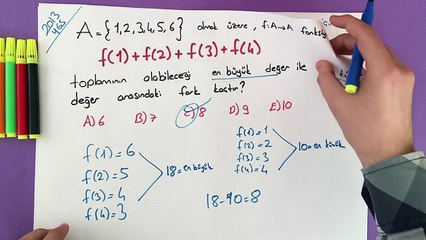 2013
YGS
A = {1,2,3,4,5,6} olmak üzere, f: A→A
f(1) + f(2) + f(3) + f(4)
toplamının alabileceği en büyük değer ile
değer arasındaki fark kaçtır?
A) 6 B) 7 C) 8 D) 9 E) 10
f(1) = 6
f(2) = 5
f(3) = 4
f(4) = 3
18 = en büyük
f(1) = 1
f(2) = 2
f(3) = 3
f(4) = 4
10 = en küçük
18-10=8